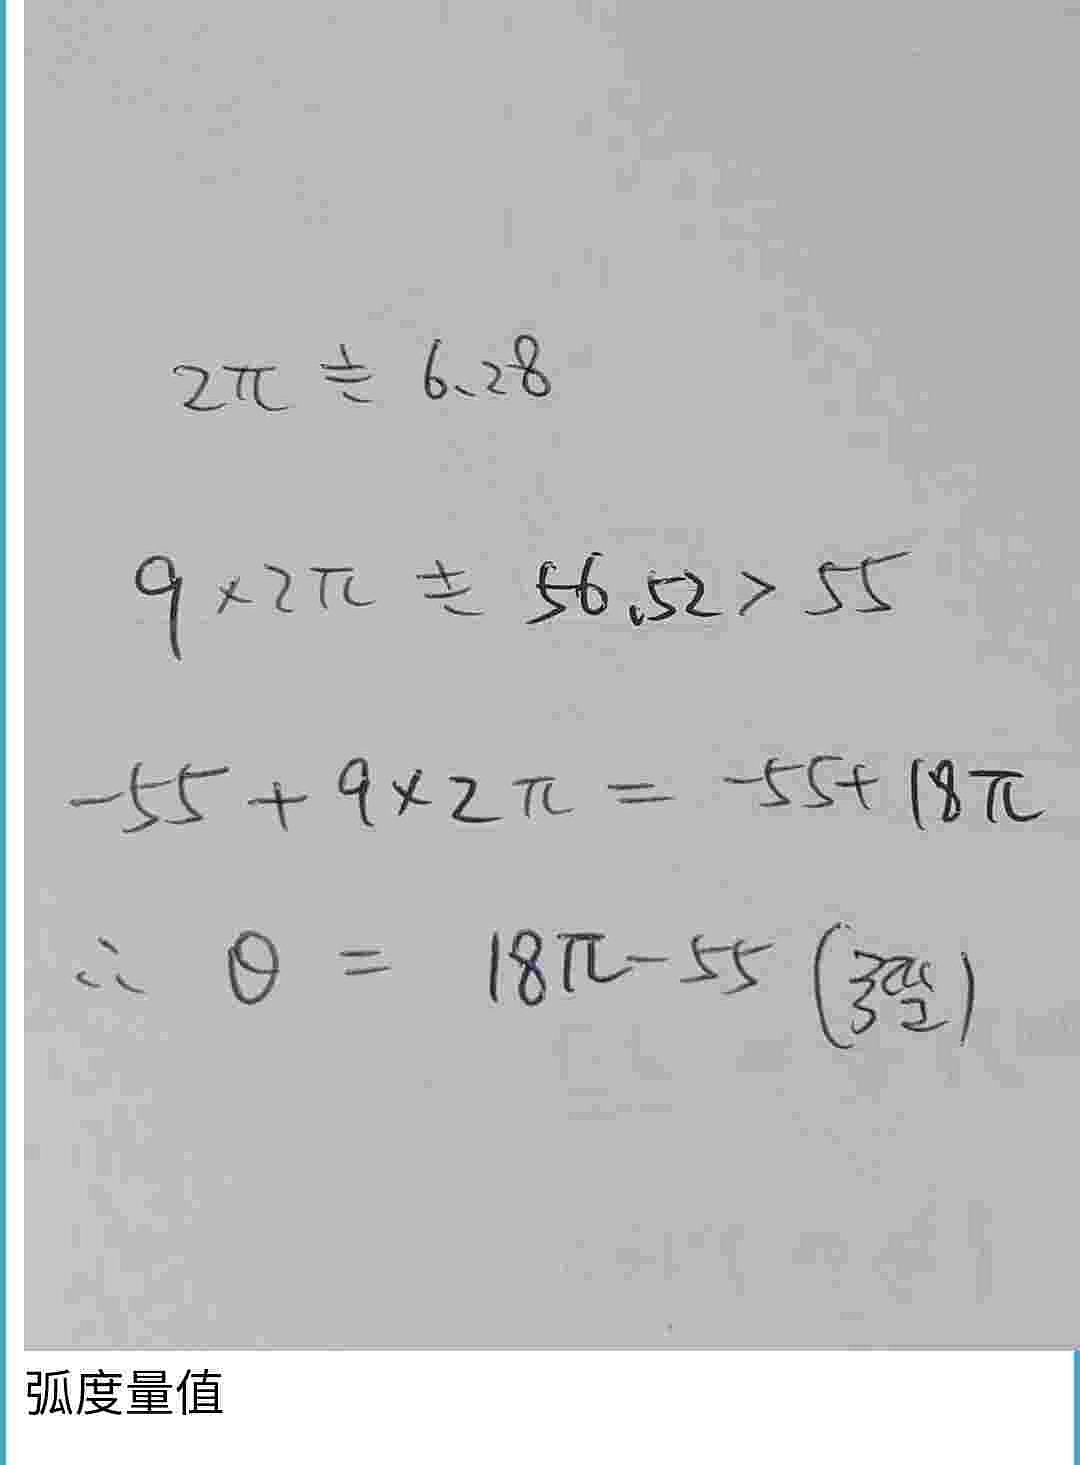 2π ≒ 6.28
9×2π ≒ 56.52 > 55
-55 + 9×2π = -55+18π
∴ θ = 18π-55 (弳)
弧度量值